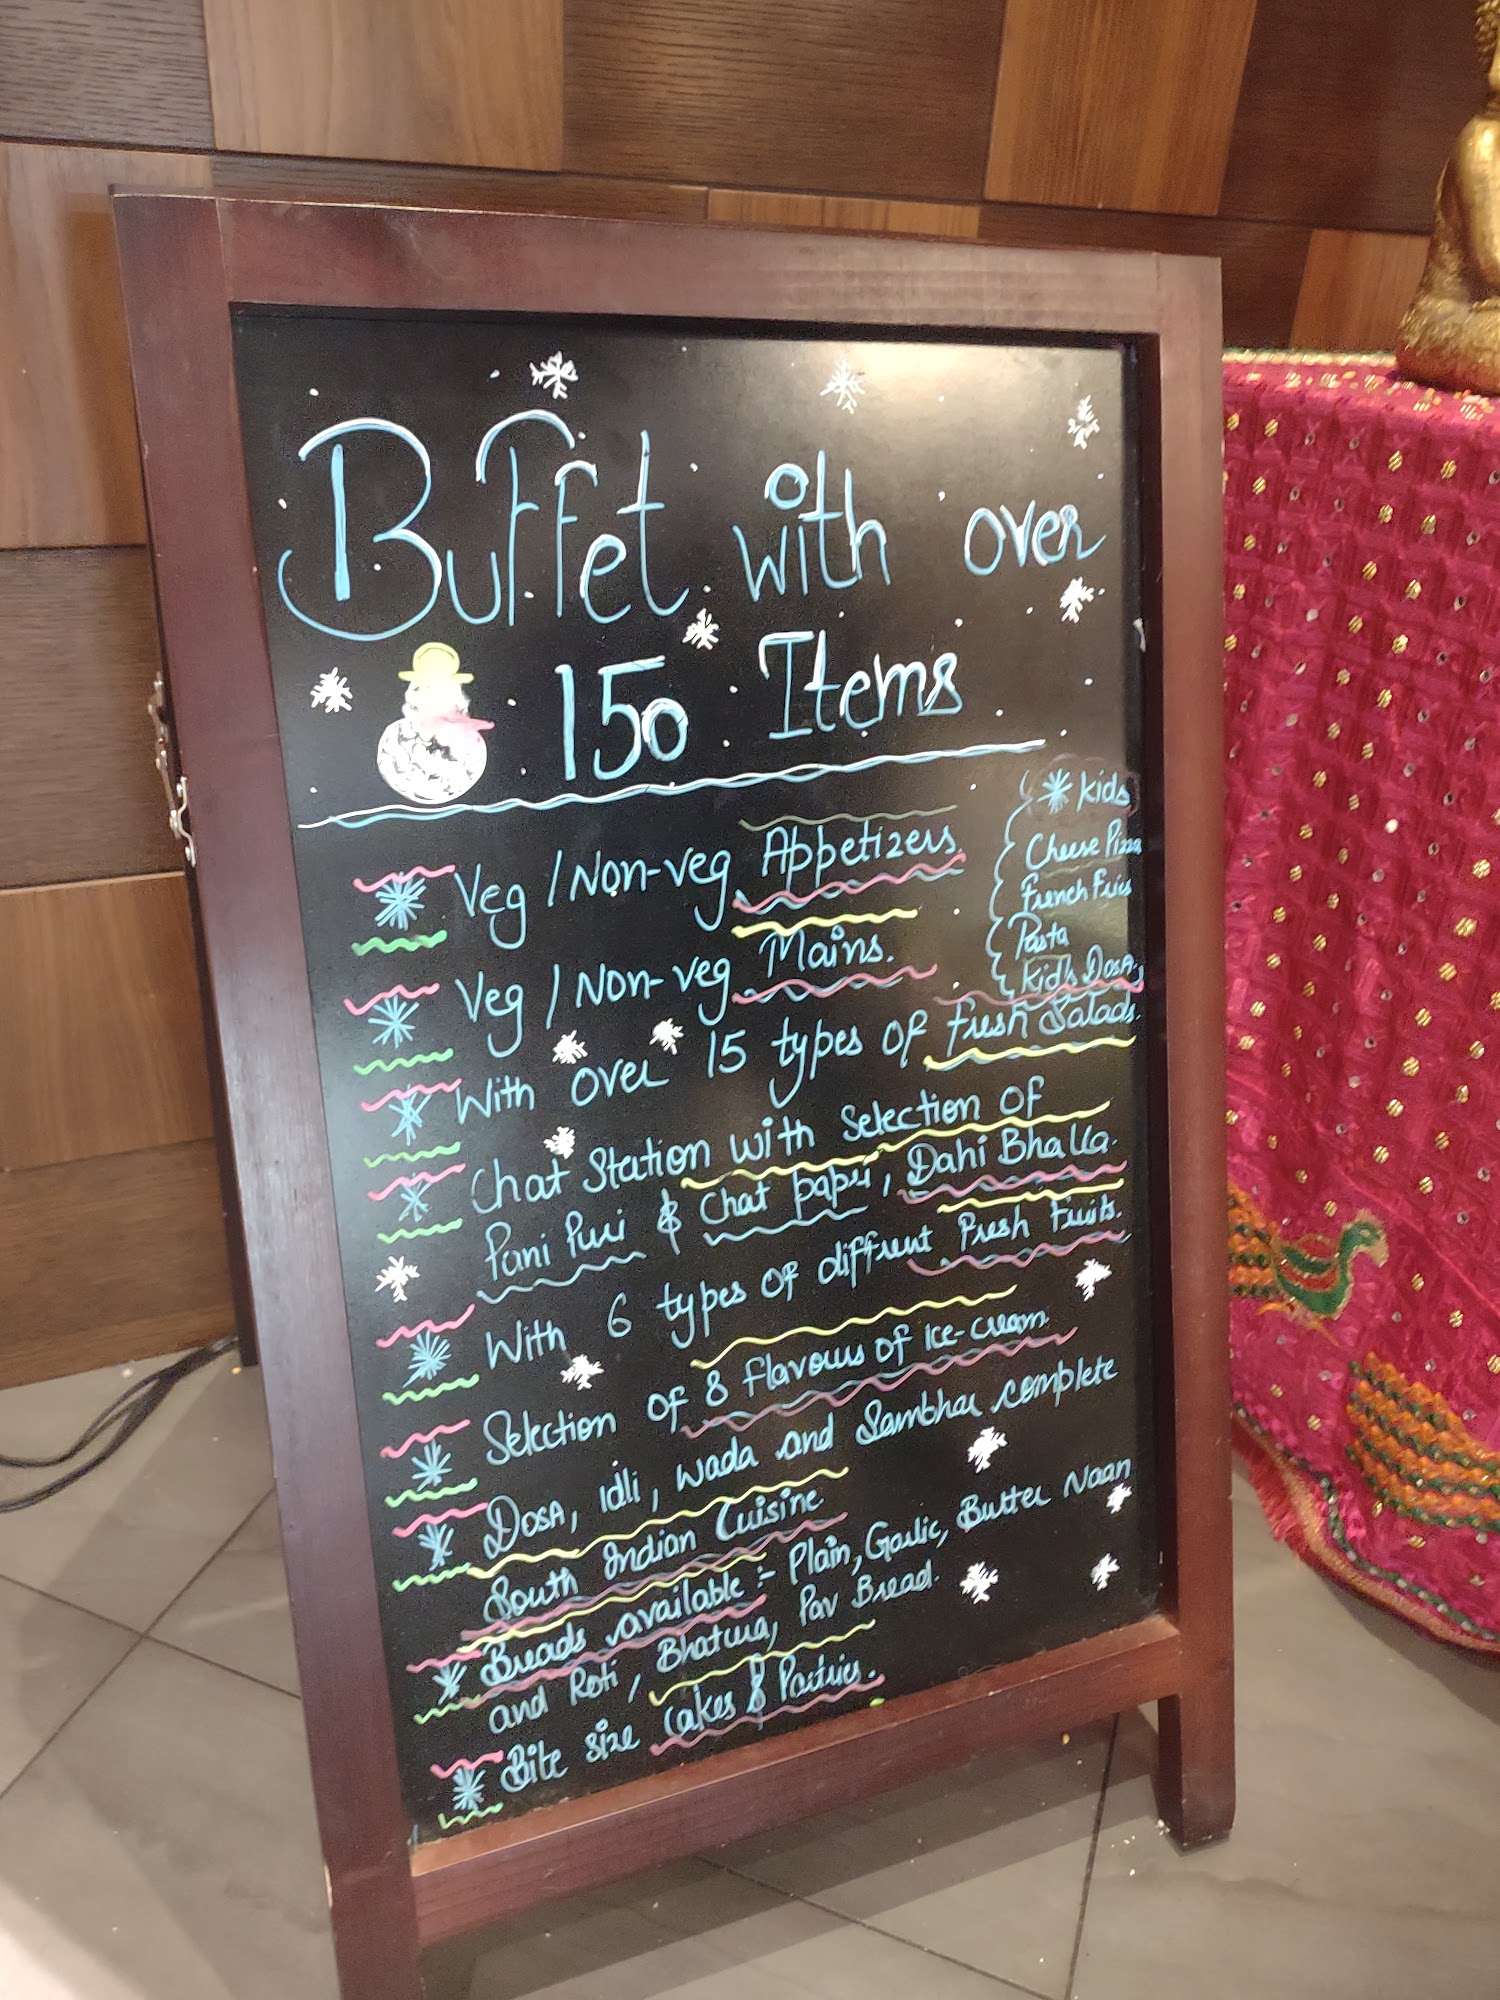 Buffet with over
150 Items
Veg / Non-veg Appetizers.
Veg / Non-veg Mains.
With over 15 types of Fresh Salads.
Chat Station with Selection of
Pani Puri & Chat papri, Dahi Bhalla.
With 6 types of diffrent Fresh Fruits.
Selection of 8 flavours of Ice-cream.
Dosa, idli, wada and Sambhar complete
South Indian Cuisine.
Breads available :- Plain, Garlic, Butter Naan
and Roti, Bhatura, Pav Bread.
Bite size cakes & Pastries.
kids
Cheese Pizza
French Fries
Pasta
Kid's Dosa.